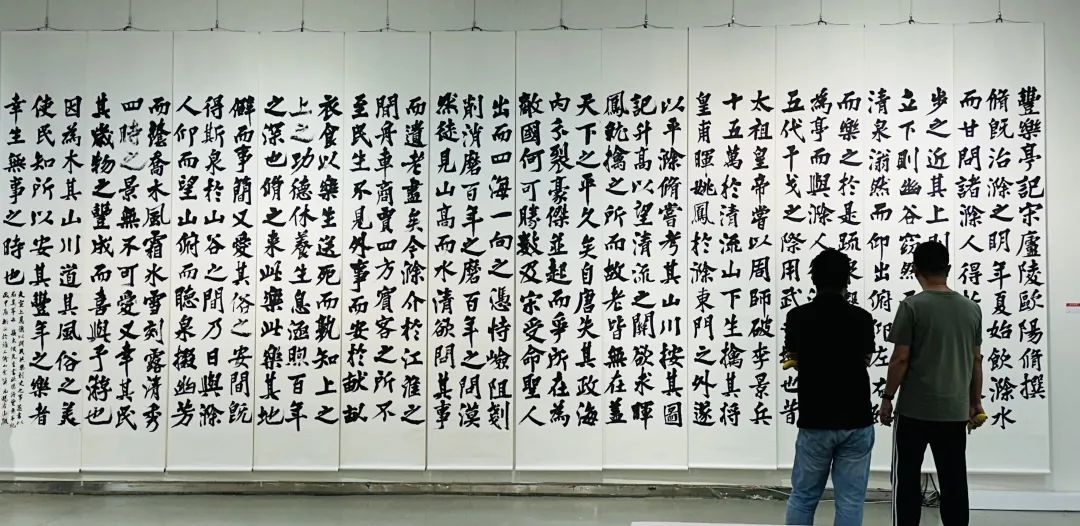 豐樂亭記宋廬陵歐陽脩撰
脩既治滁之明年夏始飲滁水
而甘問諸滁人得
步之近其上則
立下則幽谷窈然
清泉滃然而仰出俯仰左右
而樂之於是疏泉
為亭而與滁人
五代干戈之際用武也昔
太祖皇帝嘗以周師破李景兵
十五萬於清流山下生擒其將
皇甫暉姚鳳於滁東門之外遂
以平滁脩嘗考其山川按其圖
記升高以望清流之關欲求暉
鳳就擒之所而故老皆無在蓋
天下之平久矣自唐失其政海
內分裂豪傑並起而爭所在為
敵國何可勝數及宋受命聖人
出而四海一向之憑恃險阻剗
削消磨百年之磨百年之間漠
然徒見山高而水清欲問其事
而遺老盡矣今滁介於江淮之
間舟車商賈四方賓客之所不
至民生不見外事而安於畎畝
衣食以樂生送死而孰知上之
上之功德休養生息涵煦百年
之深也脩之來此樂此樂其地
僻而事簡又愛其俗之安閒既
得斯泉於山谷之間乃日與滁
人仰而望山俯而聽泉掇幽芳
而蔭喬木風霜水雪刻露清秀
四時之景無不可愛又幸其民
其歲物之豐成而喜與予游也
因為本其山川道其風俗之美
使民知所以安其豐年之樂者
幸生無事之時也